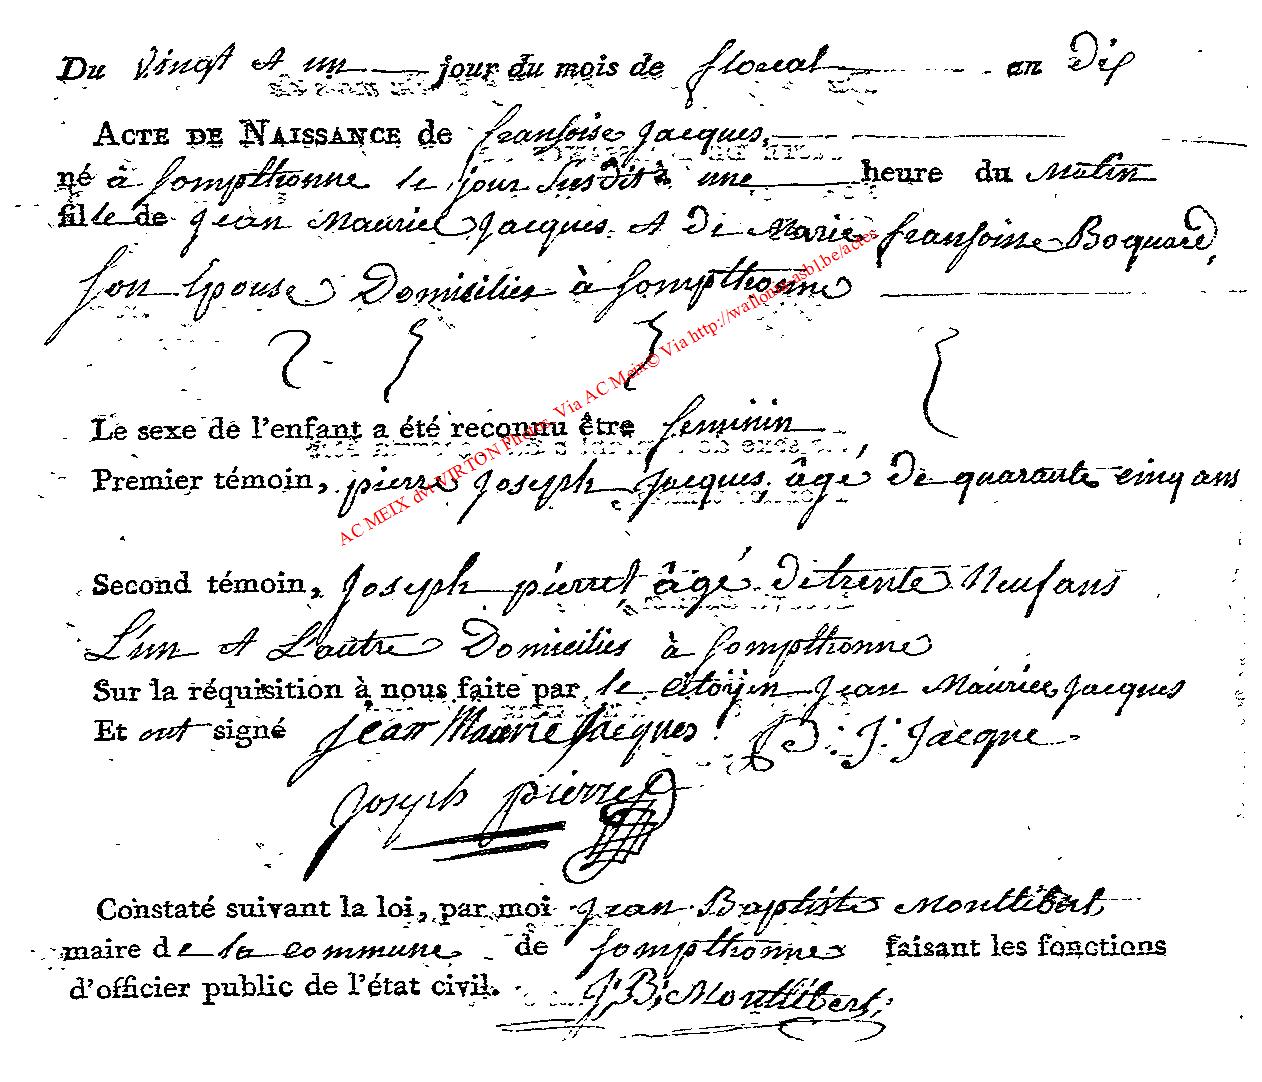 Du Vingt et un jour du mois de floreal an Dix
ACTE DE NAISSANCE de fransoise Jacques,
né à Sompthonne le jour Susdit à une heure du Matin
fille de Jean Maurice Jacques et de Marie fransoise Boquard,
Son Epouse Domicilies à Sompthonne
Le sexe de l'enfant a été reconnu être feminin
Premier témoin, pierre Joseph Jacques, âgé de quarante cinq ans
Second témoin, Joseph pierret âgé de trente Neuf ans
L'un et L'autre Domicilies à Sompthonne
Sur la réquisition à nous faite par le citoyen Jean Maurice Jacques
Et ont signé Jean Maurice Jacques P: J: Jacque
Joseph pierret
Constaté suivant la loi, par moi Jean Baptiste Montlibert
maire de la commune de Sompthonne faisant les fonctions
d'officier public de l'état civil. J: B: Montlibert
AC MEIX dvt VIRTON Photo. Via AC Meix© Via http://wallonica-asbl.be/actes